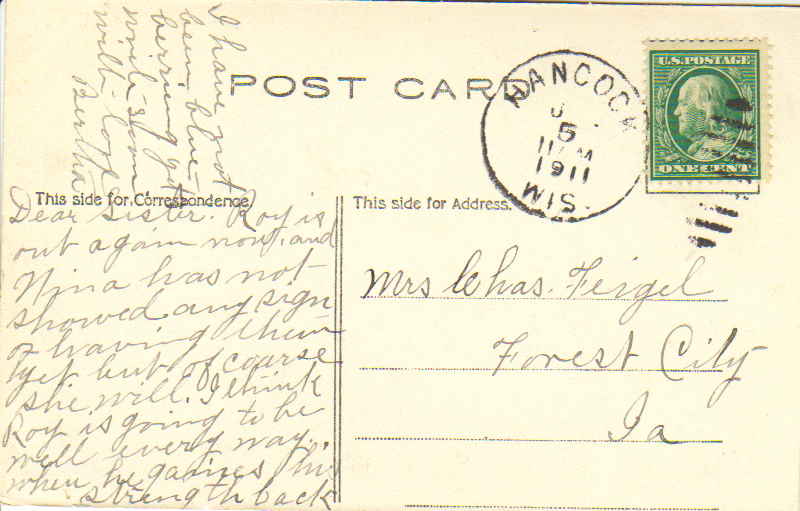 POST CARD
U.S. POSTAGE
ONE CENT
HANCOCK
5
11 AM
1911
WIS
This side for Correspondence.
This side for Address.
Dear Sister. Roy is
out again now, and
Nina has not
showed any sign
of having them
yet but of coarse
she will. I think
Roy is going to be
well every way.
when he gaines his
strength back
I have not
been blue-
berrying yet
write soon
with love
Bertha
Mrs Chas. Feigel
Forest City
Ia